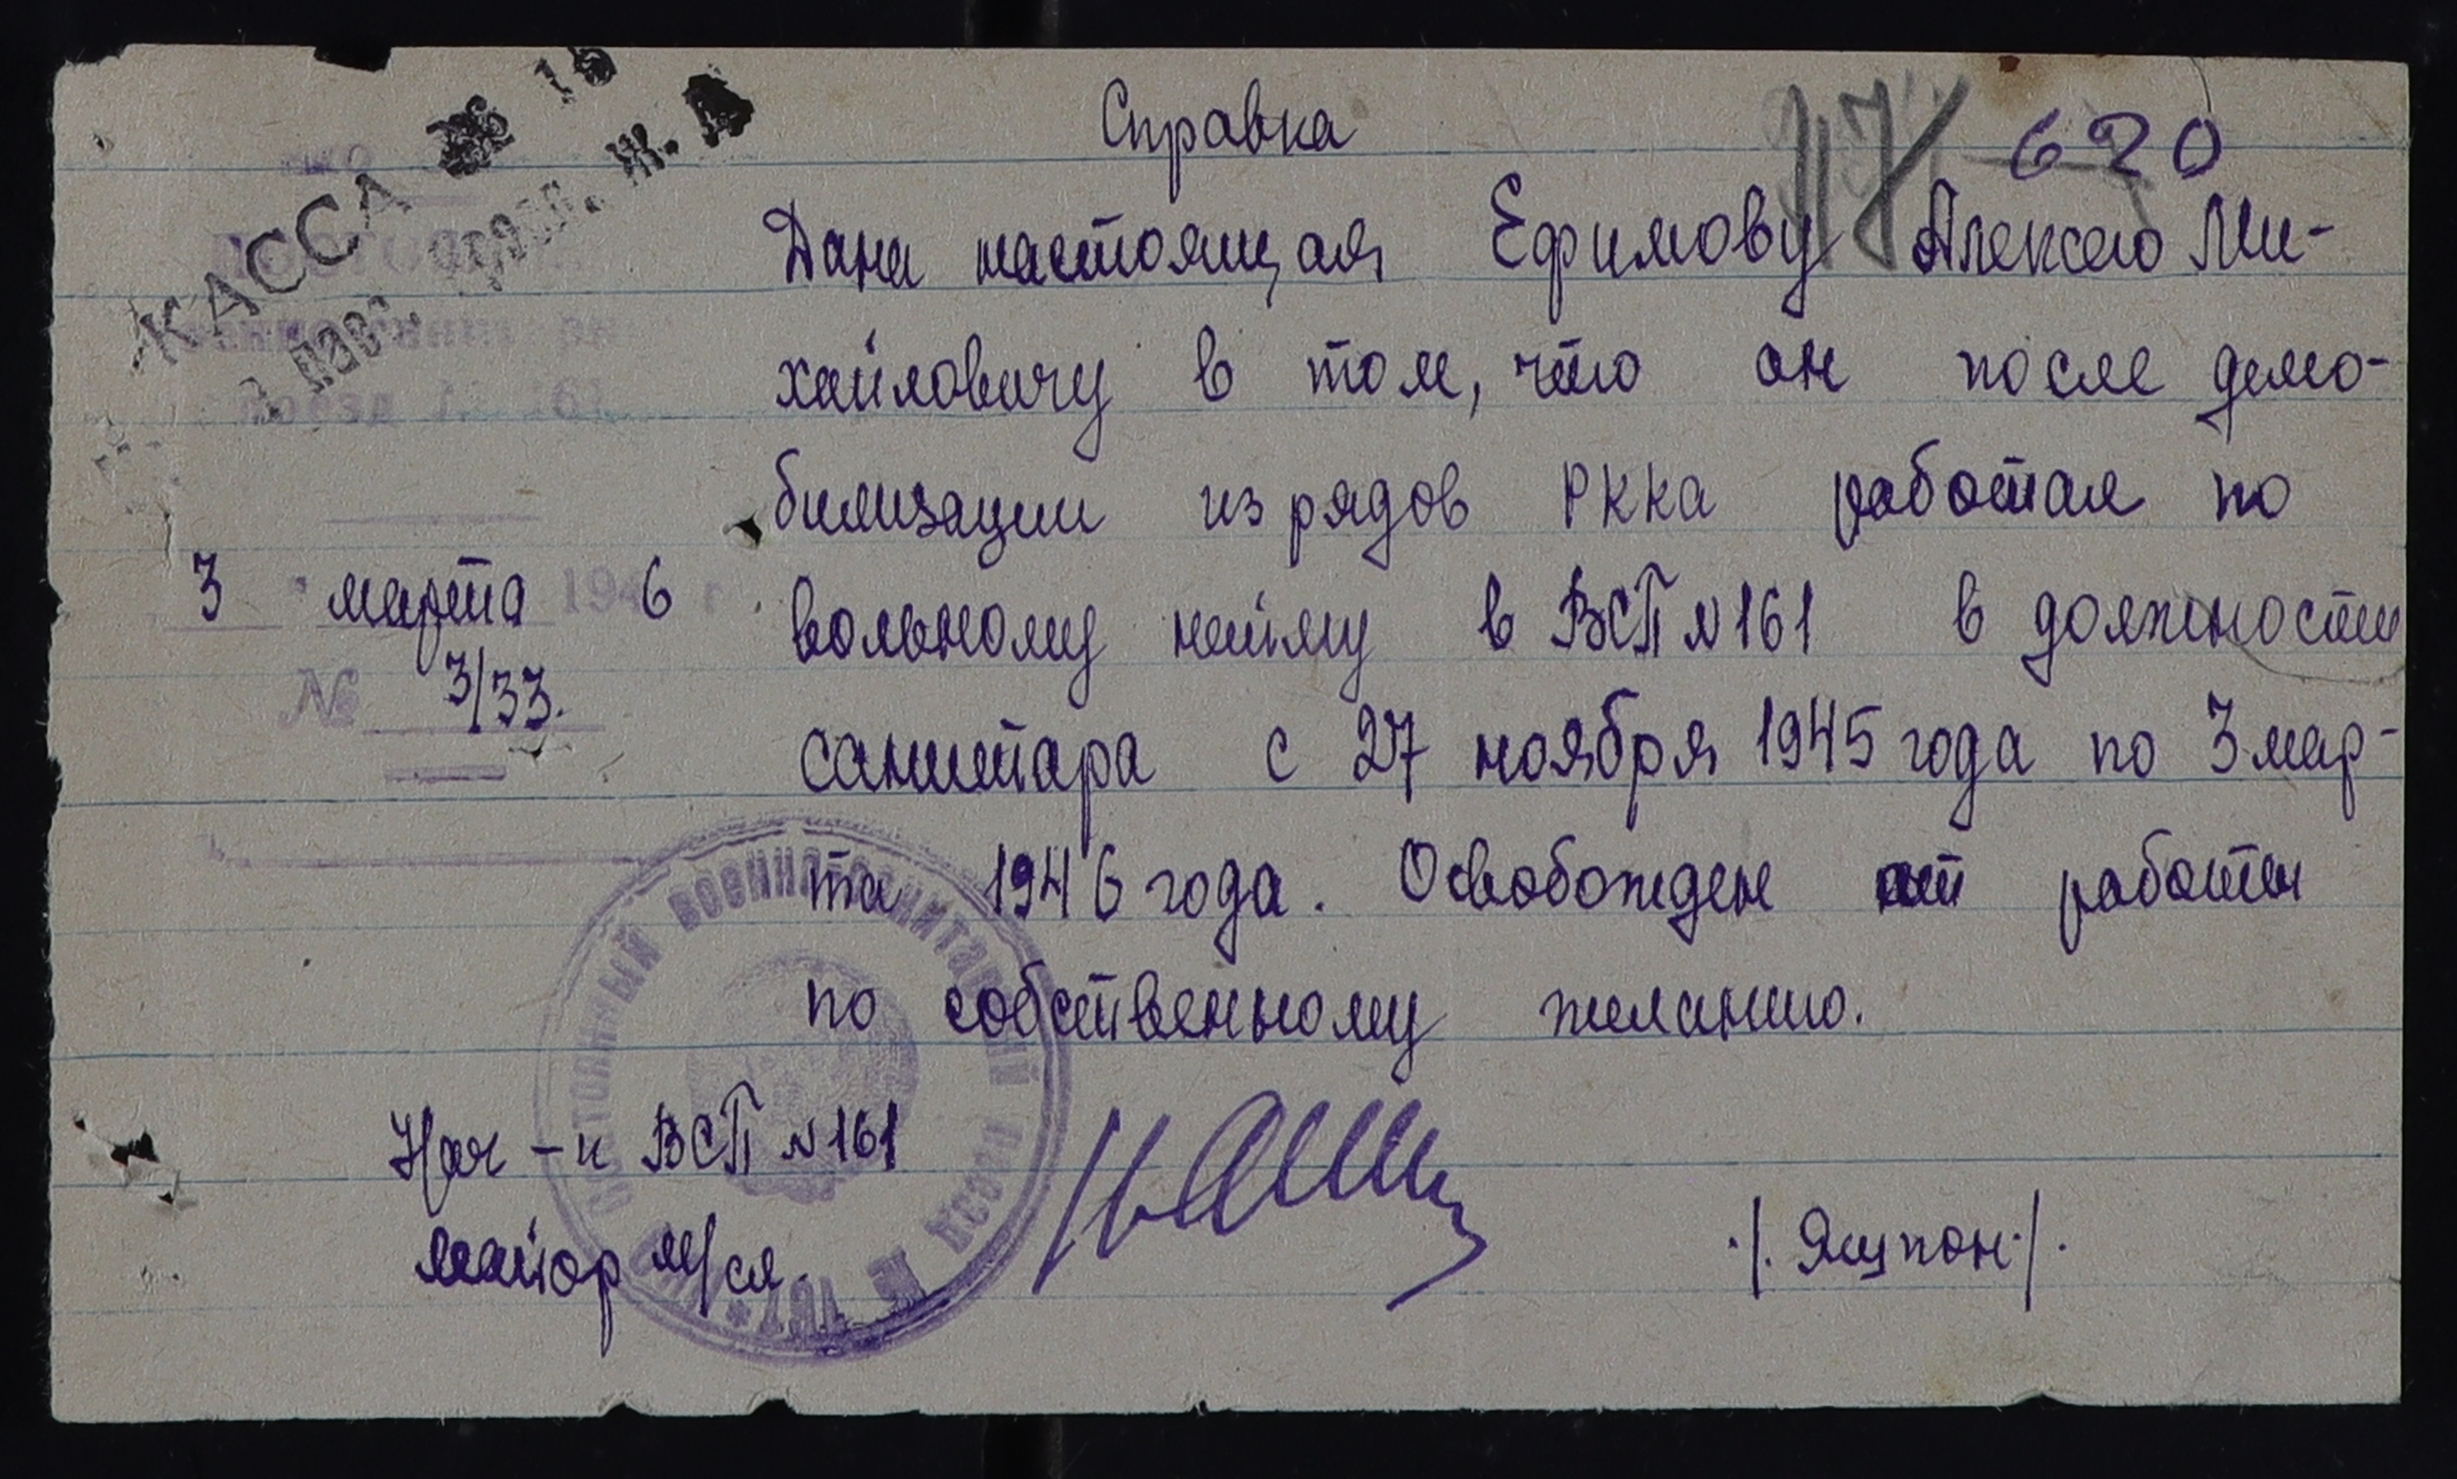 КАССА № 16
Ж. Д
620
Справка
Дана настоящая Ефимову Алексею Ми-
хайловичу в том, что он после демо-
билизации из рядов РККА работал по
вольному найму в ВСП №161 в должности
санитара с 27 ноября 1945 года по 3 мар-
та 1946 года. Освобожден от работы
по собственному желанию.
3 марта 1946 г
№ 3/33.
Нач-к ВСП №161
майор м/сл.
/. Яцпон./.
военно-санитарный поезд № 161